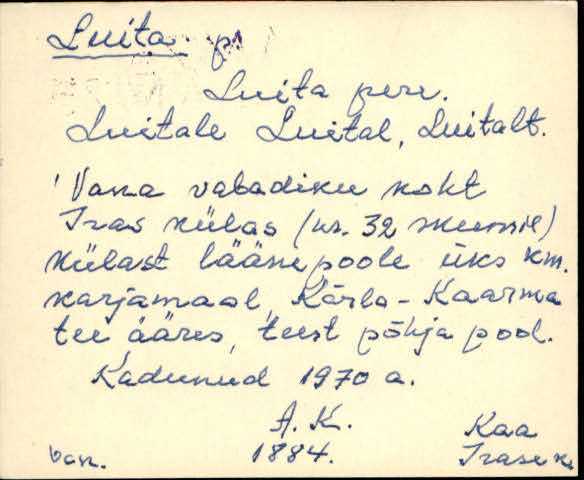 Luita p
Luita pere.
Luitale Luital, Luitalt.
Vana vabadiku koht
Iras külas (nr. 32 skeemil)
külast lääne poole üks km.
karjamaal, Kärla-Kaarma
tee ääres, teest põhja pool.
Kadunud 1970 a.
A. K. Kaa
van. 1884. Irase k.